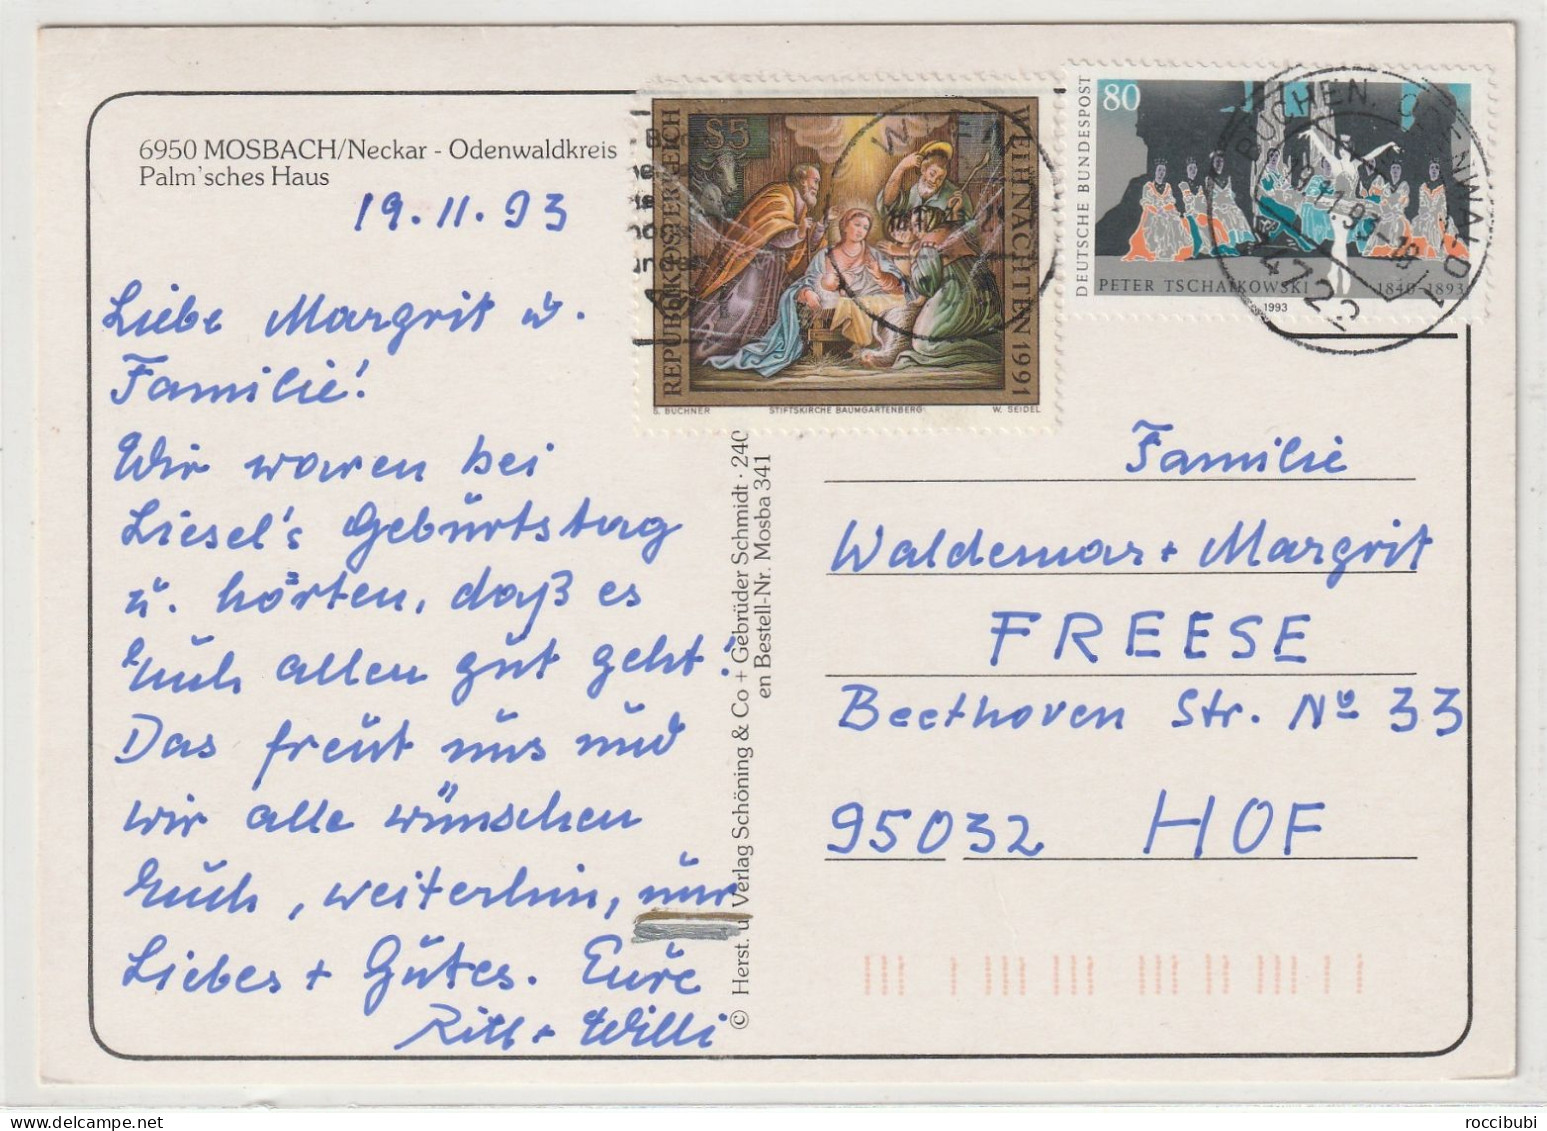 6950 MOSBACH/Neckar - Odenwaldkreis
Palm'sches Haus
19.11.93
Liebe Margrit u.
Familie!
Wir waren bei
Liesel's Geburtstag
u. hörten, daß es
Euch allen gut geht!
Das freut uns und
wir alle wünschen
Euch, weiterhin, nur
Liebes + Gutes. Eure
+ Willi
REPUBLIK ÖSTERREICH
S5
WEIHNACHTEN 1991
S. BUCHNER STIFTSKIRCHE BAUMGARTENBERG W. SEIDEL
WIEN
80
DEUTSCHE BUNDESPOST
PETER TSCHAIKOWSKI 1840-1893
1993
BUCHEN, ODENWALD 1
19.11.93-18
4722
© Herst. u. Verlag Schöning & Co + Gebrüder Schmidt · 240
en Bestell-Nr. Mosba 341
Familie
Waldemar + Margrit
FREESE
Beethoven Str. Nº 33
95032 HOF
roccibubi